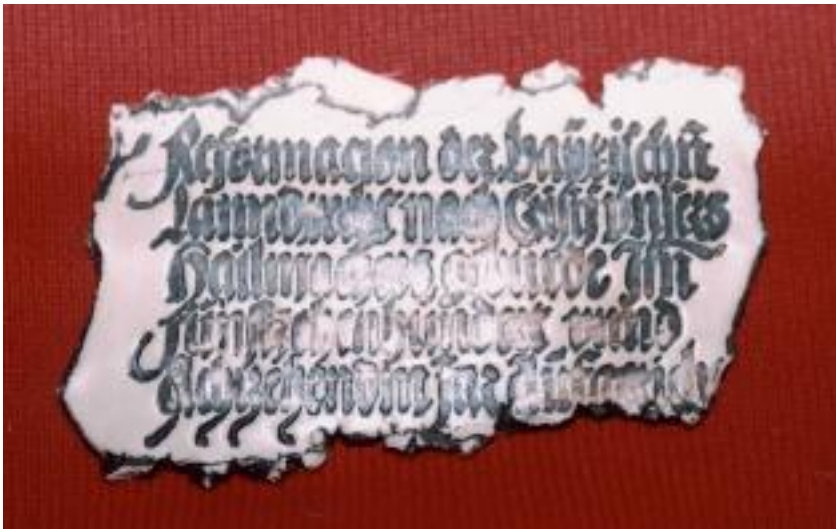 Reformacion der bayrischn
Lanndrecht nach Cristi vnsers
Hailmachers geburde Im
Fünftzehenhundert vnnd
Achtzehendm Jar Aufgericht